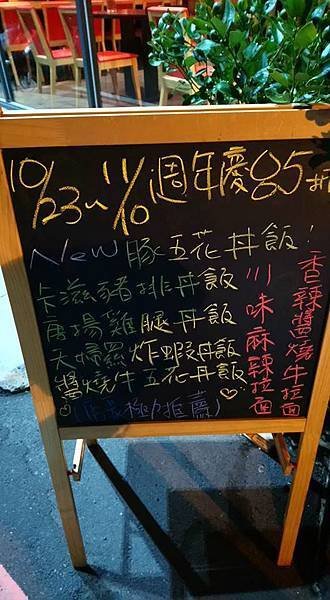 10/23~11/10 週年慶85折
New 豚五花丼飯!
卡滋豬排丼飯
唐揚雞腿丼飯
天婦羅炸蝦丼飯
醬燒牛五花丼飯
(店長極力推薦)
川味麻辣拉面
香辣醬燒牛拉面